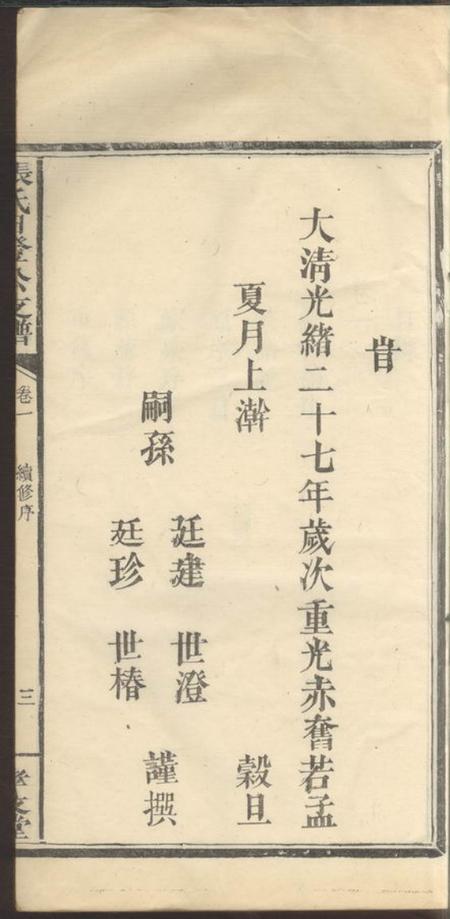 旹
大清光緒二十七年歲次重光赤奮若孟
夏月上澣 穀旦
嗣孫
廷建 世澄
廷珍 世椿
謹撰
張氏日登公支譜
卷一 續修序
三
孝友堂